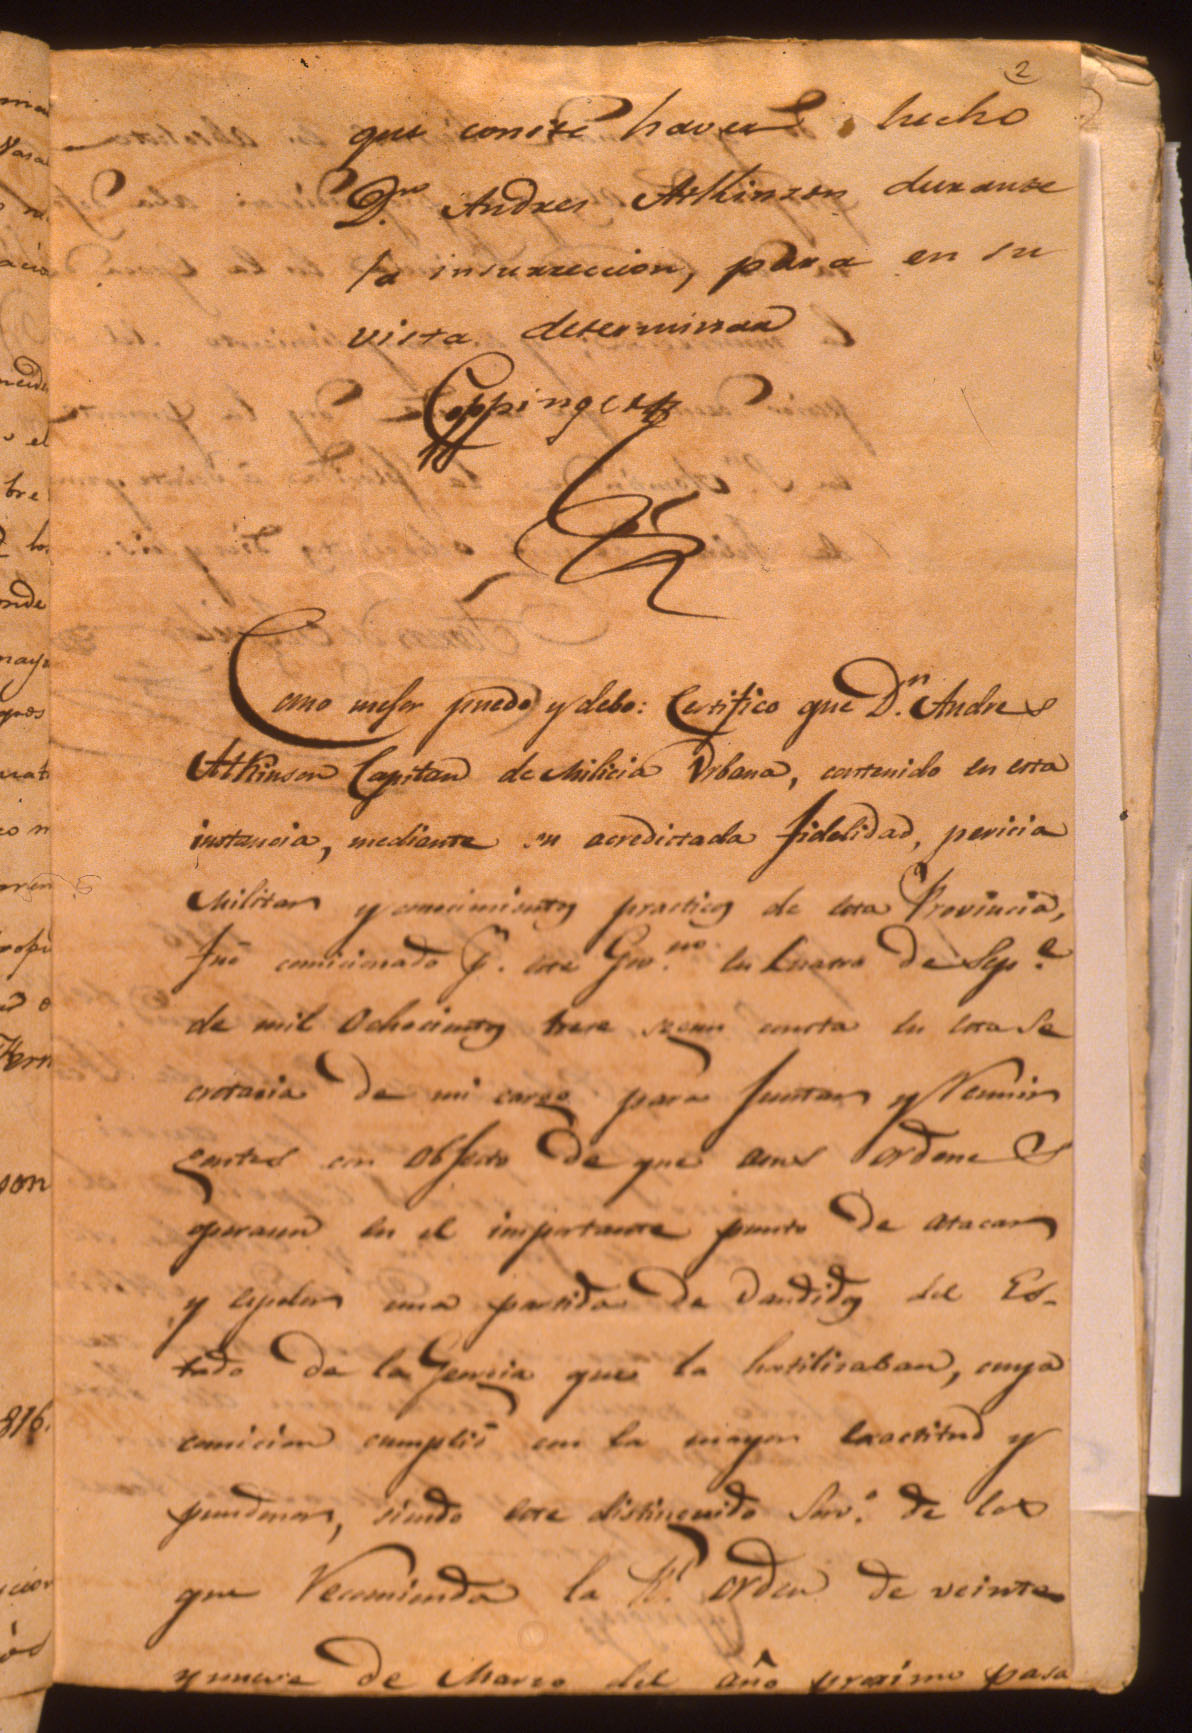 2
que conste haver hecho
D.n Andres Atkinson durante
la insurreccion, para en su
vista determinar
Coppinger
Como mejor puedo y debo: Certifico que D.n Andres
Atkinson Capitan de Milicia Urbana, contenido en esta
instancia, mediante su acreditada fidelidad, pericia
Militar y conocimientos practicos de esta Provincia,
fué comicionado p.r este Gov.no en Quatro de Sep.e
de mil Ochocientos trece segun consta en esta Se
cretaria de mi cargo para Juntar y Reunir
gentes con objecto de que asus ordenes
operasen en el importante punto de atacar
y repeler una partida de Vandidos del Es-
tado de la Georgia que la hostilisaban, cuya
comicion cumplió con la mayor exactitud y
pundonor, siendo este distinguido Serv.o de los
que Recomienda la R.l orden de veinte
y nueve de Marzo del año proximo pasa